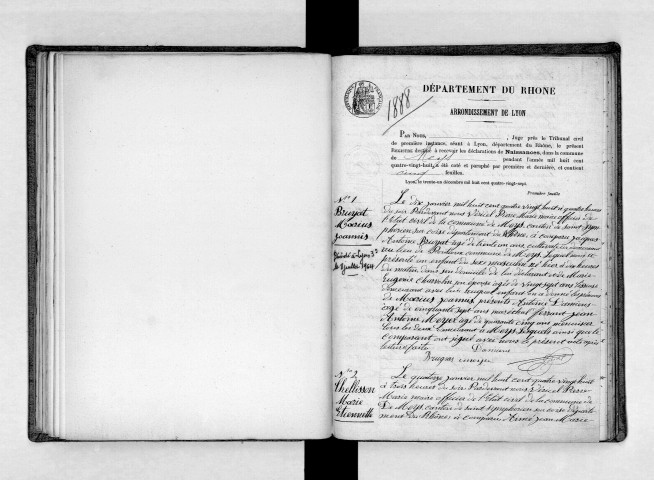 1888
DÉPARTEMENT DU RHONE
ARRONDISSEMENT DE LYON
PAR NOUS, , Juge près le Tribunal civil
de première instance, séant à Lyon, département du Rhône, le présent
REGISTRE destiné à recevoir les déclarations de Naissances, dans la commune
de pendant l'année mil huit cent
quatre-vingt-huit, a été coté et paraphé par première et dernière, et contient
cinq feuilles.
Lyon, le trente-un décembre mil huit cent quatre-vingt-sept.
Première feuille
N° 1
Bruyat
Marius
Joannès
Décédé à Lyon 3e
1944
Le dix janvier mil huit cent quatre vingt huit à quatre heures
du soir Pardevant nous Pierre Marie maire officier de
l'Etat civil de la commune de Meys canton de saint Sym
phorien sur coise département du Rhône, a comparu Jacques
Antoine Bruyat âgé de trente un ans, cultivateur demeurant
au lieu de commune de Meys. Lequel nous a
présenté un enfant du sexe masculin né hier à dix heures
du matin dans son domicile de lui déclarant et de Marie
Eugénie son épouse âgée de vingt sept ans
demeurant avec lui auquel enfant on a donné les prénoms
de Marius Joannès, présents Antoine Damiens
âgé de cinquante sept ans maréchal ferrant Jean
Antoine âgé de quarante cinq ans menuisier
tous les deux demeurant à Meys lesquels ainsi que le
comparant ont signé avec nous le présent acte après
lecture faite. Damiens
N° 2
Thellisson
Marie
Etiennette
Le quatorze janvier mil huit cent quatre vingt huit
à trois heures du soir Pardevant nous Pierre
Marie maire officier de l'Etat civil de la commune
De Meys canton de saint Symphorien sur coise départe
ment du Rhône a comparu Aimé Jean Marie